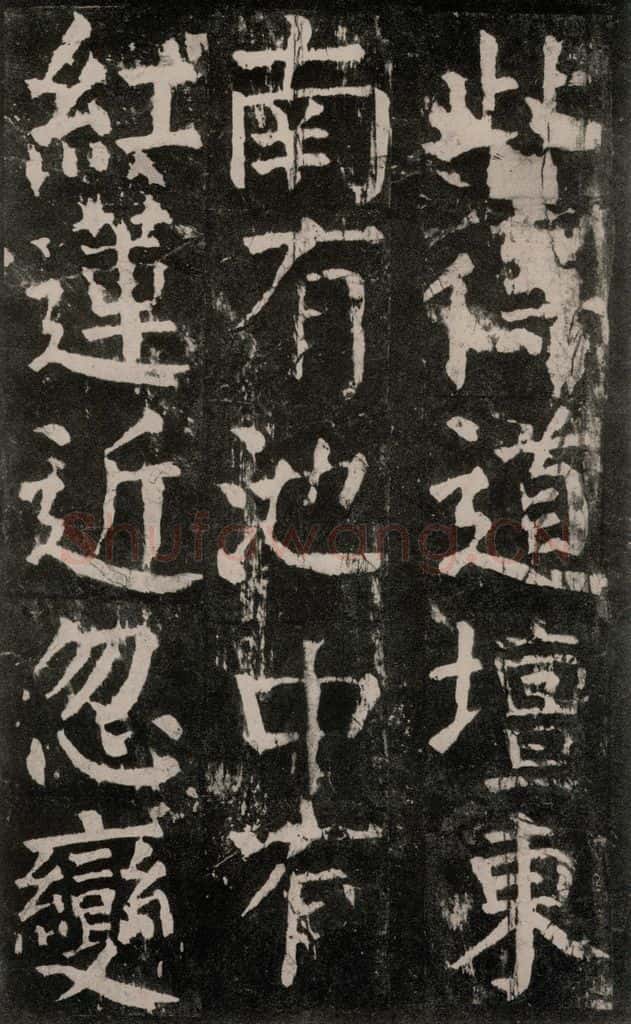 此得道壇東
南有池中有
紅蓮近忽變
Shufawang.CN